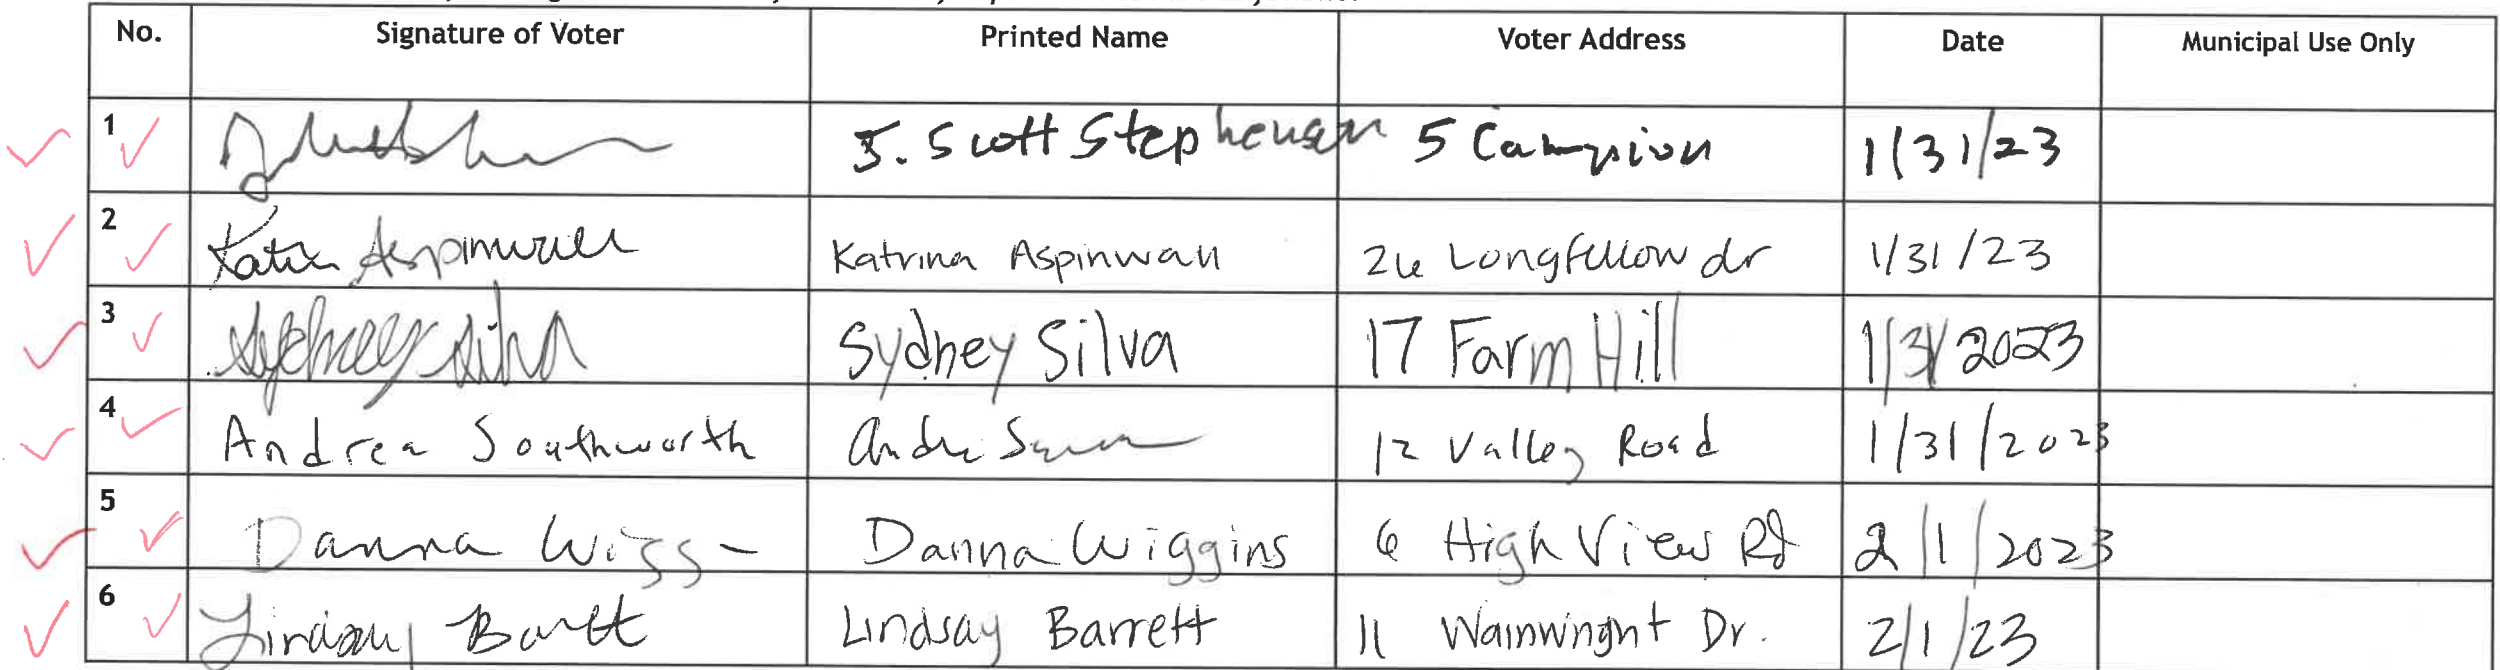 No. Signature of Voter Printed Name Voter Address Date Municipal Use Only
1 J. Scott Stephenson 5 Campion 1/31/23
2 Katrina Aspinwall Katrina Aspinwall 26 Longfellow dr 1/31/23
3 Sydney Silva Sydney Silva 17 Farm Hill 1/31/2023
4 Andrea Southworth 12 Valley Road 1/31/2023
5 Danna Wigg Danna Wiggins 6 High View Rd 2/1/2023
6 Lindsay Barrett Lindsay Barrett 11 Wainwright Dr. 2/1/23